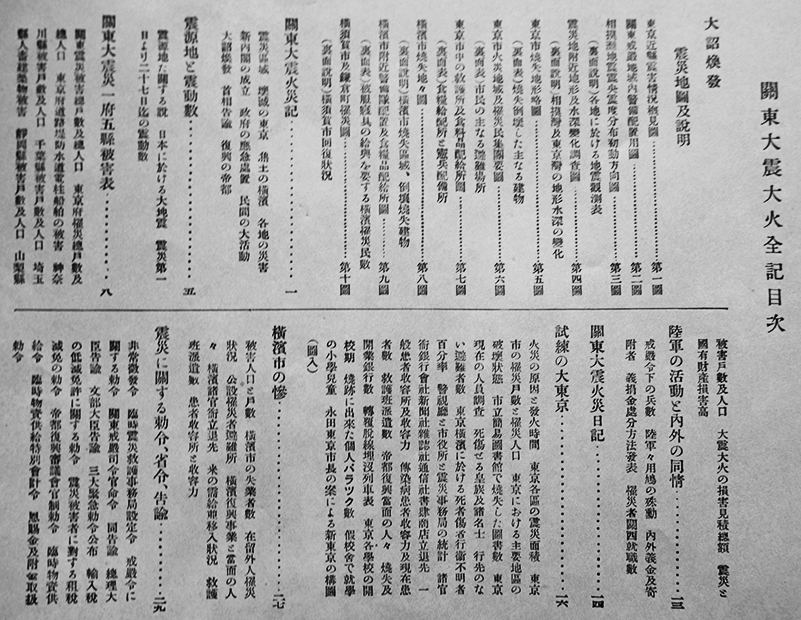 關東大震大火全記目次
大詔煥發
震災地圖及説明
東京近縣震害情況總見圖…第一圖
關東戒嚴地域内警備配置用圖…第二圖
相模灘地震震央震度分布初動方向圖…第三圖
(裏面説明)各地に於ける地震觀測表
震災地附近地形及水深變化調査圖…第四圖
(裏面説明)相模灣及東京灣の地形水深の變化
東京市燒失地形略圖…第五圖
(裏面表)燒失倒壞した主なる建物
東京市大火災地域及罹災民集團要圖…第六圖
(裏面表)市民の主なる避難場所
東京市中の救護所及食料品配給所圖…第七圖
(裏面表)食糧給配所と憲兵配備所
横濱市燒失地々圖…第八圖
(裏面説明)横濱市燒失區域、倒壞燒失建物
横濱市附近警備隊配置及食糧品配給所圖…第九圖
(裏面表)被服寢具の給與を要する横濱罹災民數
横須賀市及鎌倉町罹災圖…第十圖
(裏面説明)横須賀市回復狀況
關東大震火災記…一
震災區域 壞滅の東京 焦土の横濱 各地の災害
新内閣の成立 政府の應急處置 民間の大活動
大詔煥發 首相告諭 復興の帝都
震源地と震動數…五
震源地に關する説 日本に於ける大地震 震災第一
日より二十七日迄の震動數
關東大震災一府五縣被害表…八
關東震災被害總戸數及總人口 東京府罹災總戸數及
總人口 東京府道路堤防水道電柱船舶の被害 神奈
川縣被害戸數及人口 千葉縣被害戸數及人口 埼玉
縣人畜建築物被害 靜岡縣被害戸數及人口 山梨縣
被害戸數及人口 大震大火の損害見積總額 震災と
國有財産損害高
陸軍の活動と内外の同情…一三
戒嚴令下の兵數 陸軍々用鳩の殊勳 内外義金及寄
附者 義捐金處分方法發表 罹災者關西就職數
關東大震火災日記…一四
試練の大東京…一六
火災の原因と發火時間 東京各區の震災面積 東京
市の罹災戸數と罹災人口 東京における主要地區の
破壞狀態 市立簡易圖書館で燒失した圖書數 東京
現在の人員調査 死傷せる皇族及諸名士 行先のな
い避難者數 東京横濱に於ける死者傷者行衞不明者
百分率 警視廳と市役所と震災事務局の統計 諸官
衙銀行會社新聞社雜誌社通信社書肆商店立退先 一
般患者收容所及收容力 傳染病患者收容力及現在患
者數 救護班派遣數 帝都復興當面の人々 燒失及
開業銀行數 轉覆脱線埋沒列車表 東京各學校の開
校期 燒跡に出來た個人バラック數 假校舍で就學
の小學兒童 永田東京市長の案による新東京の構圖
(圖入)
横濱市の慘…二七
被害人口と戸數 横濱市の失業者數 在留外人罹災
狀況 公設罹災者避難所 横濱復興事業と當面の人
々 横濱諸官衙立退先 米の需給期移入狀況 救護
班派遣數 患者收容所と收容力
震災に關する勅令、省令、告諭…二九
非常徴發令 臨時震災救護事務局設定令 戒嚴令に
關する勅令 關東戒嚴司令官命令 同告諭 總理大
臣告諭 文部大臣告諭 三大緊急勅令公布 輸入税
の低減免許に關する勅令 震災被害者に對する租税
減免の勅令 帝都復興審議會官制勅令 臨時物資供
給令 臨時物資供給特別會計令 恩賜金及附金取扱
勅令